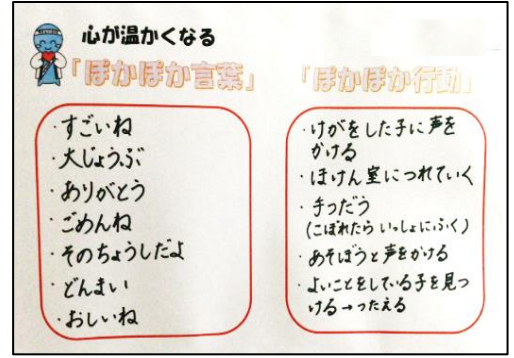 心が温かくなる
「ぽかぽか言葉」
・すごいね
・大じょうぶ
・ありがとう
・ごめんね
・そのちょうしだよ
・どんまい
・おしいね
「ぽかぽか行動」
・けがをした子に声を
かける
・ほけん室につれていく
・手つだう
(こぼれたらいっしょにふく)
・あそぼうと声をかける
・よいことをしている子を見つ
ける→つたえる